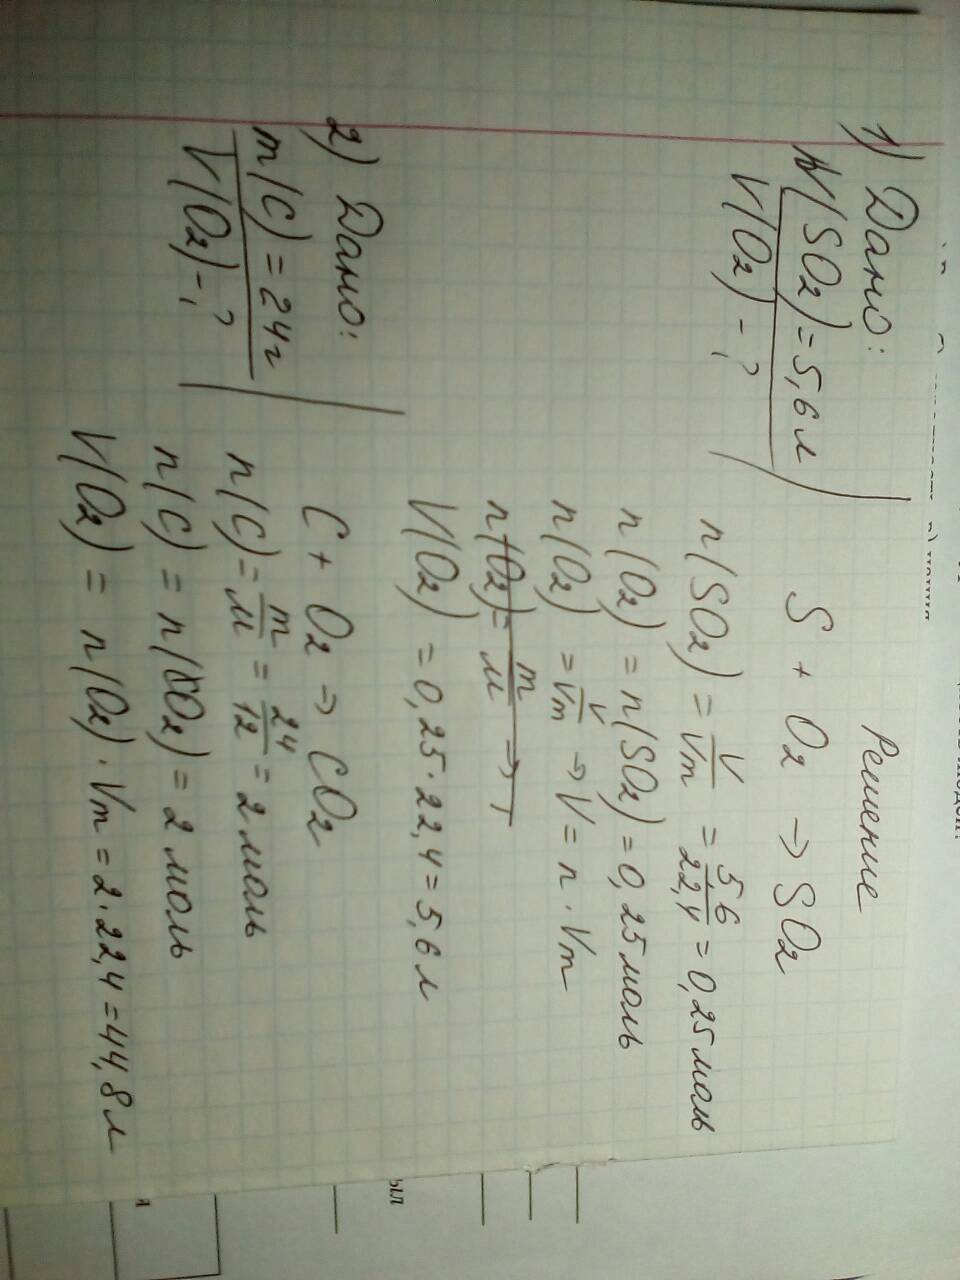 1) Дано:
V(SO2) = 5,6 л
V(O2) - ?
Решение
S + O2 → SO2
n(SO2) = V/Vm = 5,6/22,4 = 0,25 моль
n(O2) = n(SO2) = 0,25 моль
n(O2) = V/Vm → V = n · Vm
n(O2) = m/M →
V(O2) = 0,25 · 22,4 = 5,6 л
2) Дано:
m(C) = 24 г
V(O2) - ?
C + O2 → CO2
n(C) = m/M = 24/12 = 2 моль
n(C) = n(CO2) = 2 моль
V(O2) = n(O2) · Vm = 2 · 22,4 = 44,8 л
ыл
я